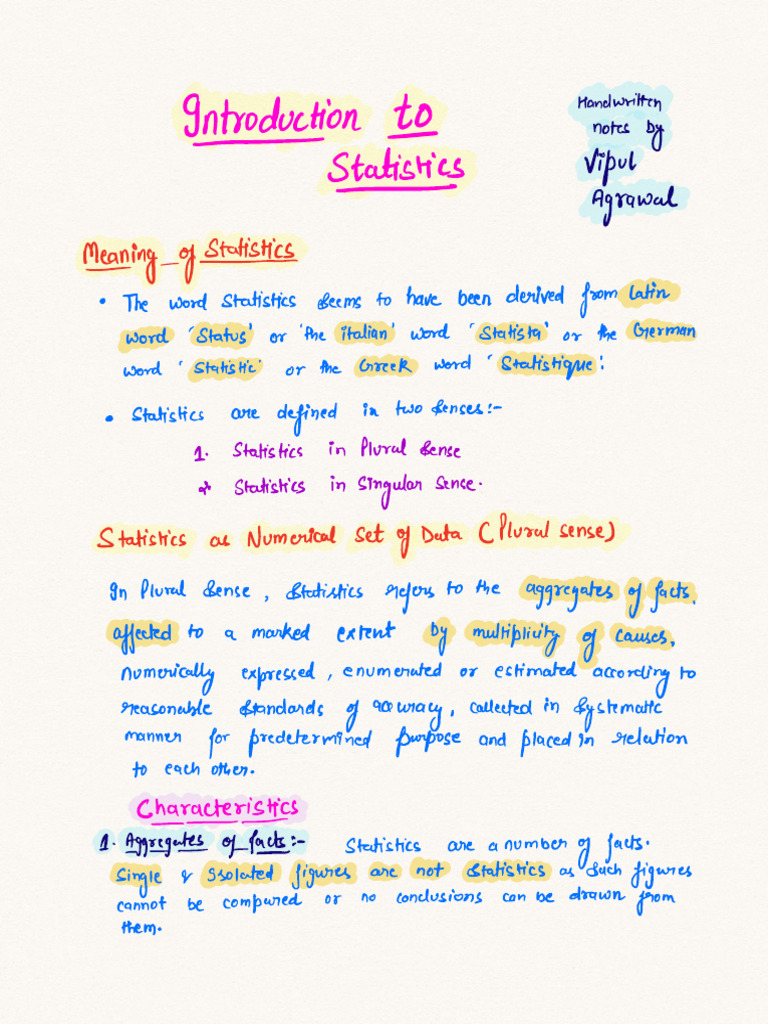 Introduction to
Statistics
Handwritten
notes by
Vipul
Agrawal
Meaning of Statistics
• The word Statistics seems to have been derived from Latin
word 'Status' or 'the italian' word 'Statista' or the German
word 'Statistic' or the Greek word 'Statistique'.
• Statistics are defined in two senses:-
1. Statistics in Plural Sense
2. Statistics in Singular Sense.
Statistics as Numerical Set of Data (Plural sense)
In Plural Sense, Statistics refers to the aggregates of facts,
affected to a marked extent by multiplicity of causes,
numerically expressed, enumerated or estimated according to
reasonable standards of accuracy, collected in Systematic
manner for predetermined purpose and placed in relation
to each other.
Characteristics
1. Aggregates of facts:- Statistics are a number of facts.
Single & Isolated figures are not Statistics as Such figures
cannot be compared or no conclusions can be drawn from
them.